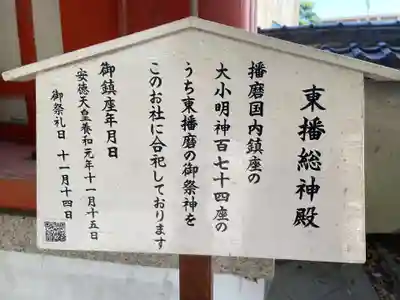 東播総神殿
播磨国内鎮座の
大小明神百七十四座の
うち東播磨の御祭神を
このお社に合祀しております
御鎮座年月日
安徳天皇養和元年十一月十五日
御祭礼日 十一月十四日